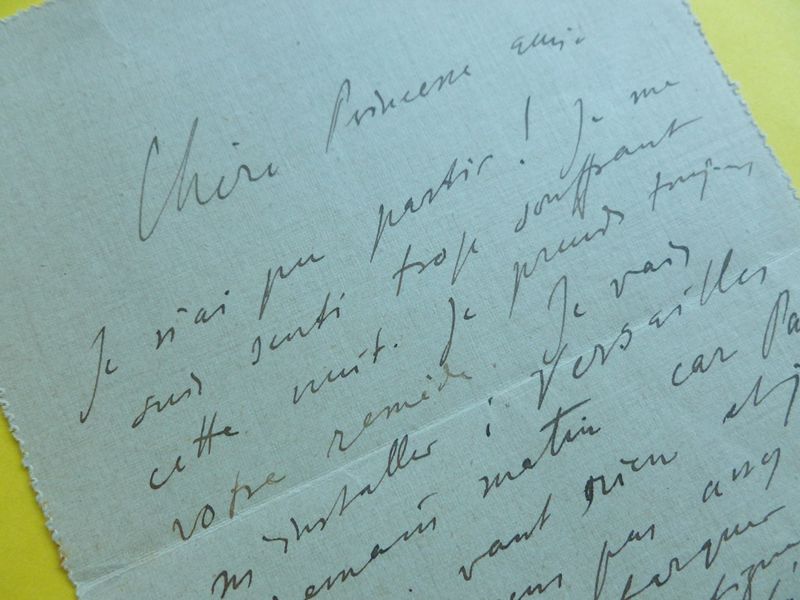 Chère Princesse amie
Je n'ai pu partir ! Je me
suis senti trop souffrant
cette nuit. Je prends toujours
votre remède. Je vais
m'installer à Versailles
demain matin car Pa
vaut rien
pas assez